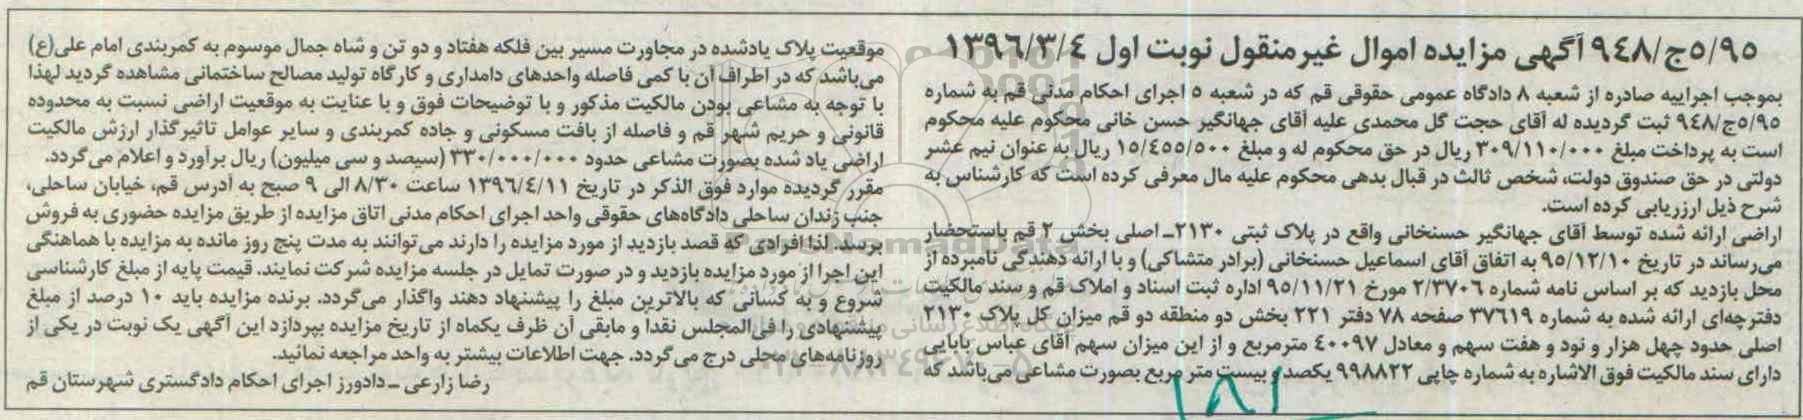 ۵/۹۵ج/۹٤۸ آگهی مزایده اموال غیرمنقول نوبت اول ۱۳۹٦/۳/٤
بموجب اجراییه صادره از شعبه ۸ دادگاه عمومی حقوقی قم که در شعبه ۵ اجرای احکام مدنی قم به شماره
۵/۹۵ج/۹٤۸ ثبت گردیده له آقای حجت گل محمدی علیه آقای جهانگیر حسن خانی محکوم علیه محکوم
است به پرداخت مبلغ ۳۰۹/۱۱۰/۰۰۰ ریال در حق محکوم له و مبلغ ۱۵/٤۵۵/۵۰۰ ریال به عنوان نیم عشر
دولتی در حق صندوق دولت، شخص ثالث در قبال بدهی محکوم علیه مال معرفی کرده است که کارشناس به
شرح ذیل ارزریابی کرده است.
اراضی ارائه شده توسط آقای جهانگیر حسنخانی واقع در پلاک ثبتی ۲۱۳۰ـ اصلی بخش ۲ قم باستحضار
می‌رساند در تاریخ ۹۵/۱۲/۱۰ به اتفاق آقای اسماعیل حسنخانی (برادر متشاکی) و با ارائه دهندگی نامبرده از
محل بازدید که بر اساس نامه شماره ۲/۳۷۰٦ مورخ ۹۵/۱۱/۲۱ اداره ثبت اسناد و املاک قم و سند مالکیت
دفترچه‌ای ارائه شده به شماره ۳۷٦۱۹ صفحه ۷۸ دفتر ۲۲۱ بخش دو منطقه دو قم میزان کل پلاک ۲۱۳۰
اصلی حدود چهل هزار و نود و هفت سهم و معادل ٤۰۰۹۷ مترمربع و از این میزان سهم آقای عباس بابایی
دارای سند مالکیت فوق الاشاره به شماره چاپی ۹۹۸۸۲۲ یکصد و بیست متر مربع بصورت مشاعی می‌باشد که
موقعیت پلاک یادشده در مجاورت مسیر بین فلکه هفتاد و دو تن و شاه جمال موسوم به کمربندی امام علی(ع)
می‌باشد که در اطراف آن با کمی فاصله واحدهای دامداری و کارگاه تولید مصالح ساختمانی مشاهده گردید لهذا
با توجه به مشاعی بودن مالکیت مذکور و با توضیحات فوق و با عنایت به موقعیت اراضی نسبت به محدوده
قانونی و حریم شهر قم و فاصله از بافت مسکونی و جاده کمربندی و سایر عوامل تاثیرگذار ارزش مالکیت
اراضی یاد شده بصورت مشاعی حدود ۳۳۰/۰۰۰/۰۰۰ (سیصد و سی میلیون) ریال برآورد و اعلام می‌گردد.
مقرر گردیده موارد فوق الذکر در تاریخ ۱۳۹٦/٤/۱۱ ساعت ۸/۳۰ الی ۹ صبح به آدرس قم، خیابان ساحلی،
جنب زندان ساحلی دادگاه‌های حقوقی واحد اجرای احکام مدنی اتاق مزایده از طریق مزایده حضوری به فروش
برسد. لذا افرادی که قصد بازدید از مورد مزایده را دارند می‌توانند به مدت پنج روز مانده به مزایده با هماهنگی
این اجرا از مورد مزایده بازدید و در صورت تمایل در جلسه مزایده شرکت نمایند. قیمت پایه از مبلغ کارشناسی
شروع و به کسانی که بالاترین مبلغ را پیشنهاد دهند واگذار می‌گردد. برنده مزایده باید ۱۰ درصد از مبلغ
پیشنهادی را فی‌المجلس نقدا و مابقی آن ظرف یکماه از تاریخ مزایده بپردازد این آگهی یک نوبت در یکی از
روزنامه‌های محلی درج می‌گردد. جهت اطلاعات بیشتر به واحد مراجعه نمائید.
رضا زارعی ـ دادورز اجرای احکام دادگستری شهرستان قم
ParsNamadData
۰۲۱-۸۸۳٤۹٦۷۰-۵
۱۸۱